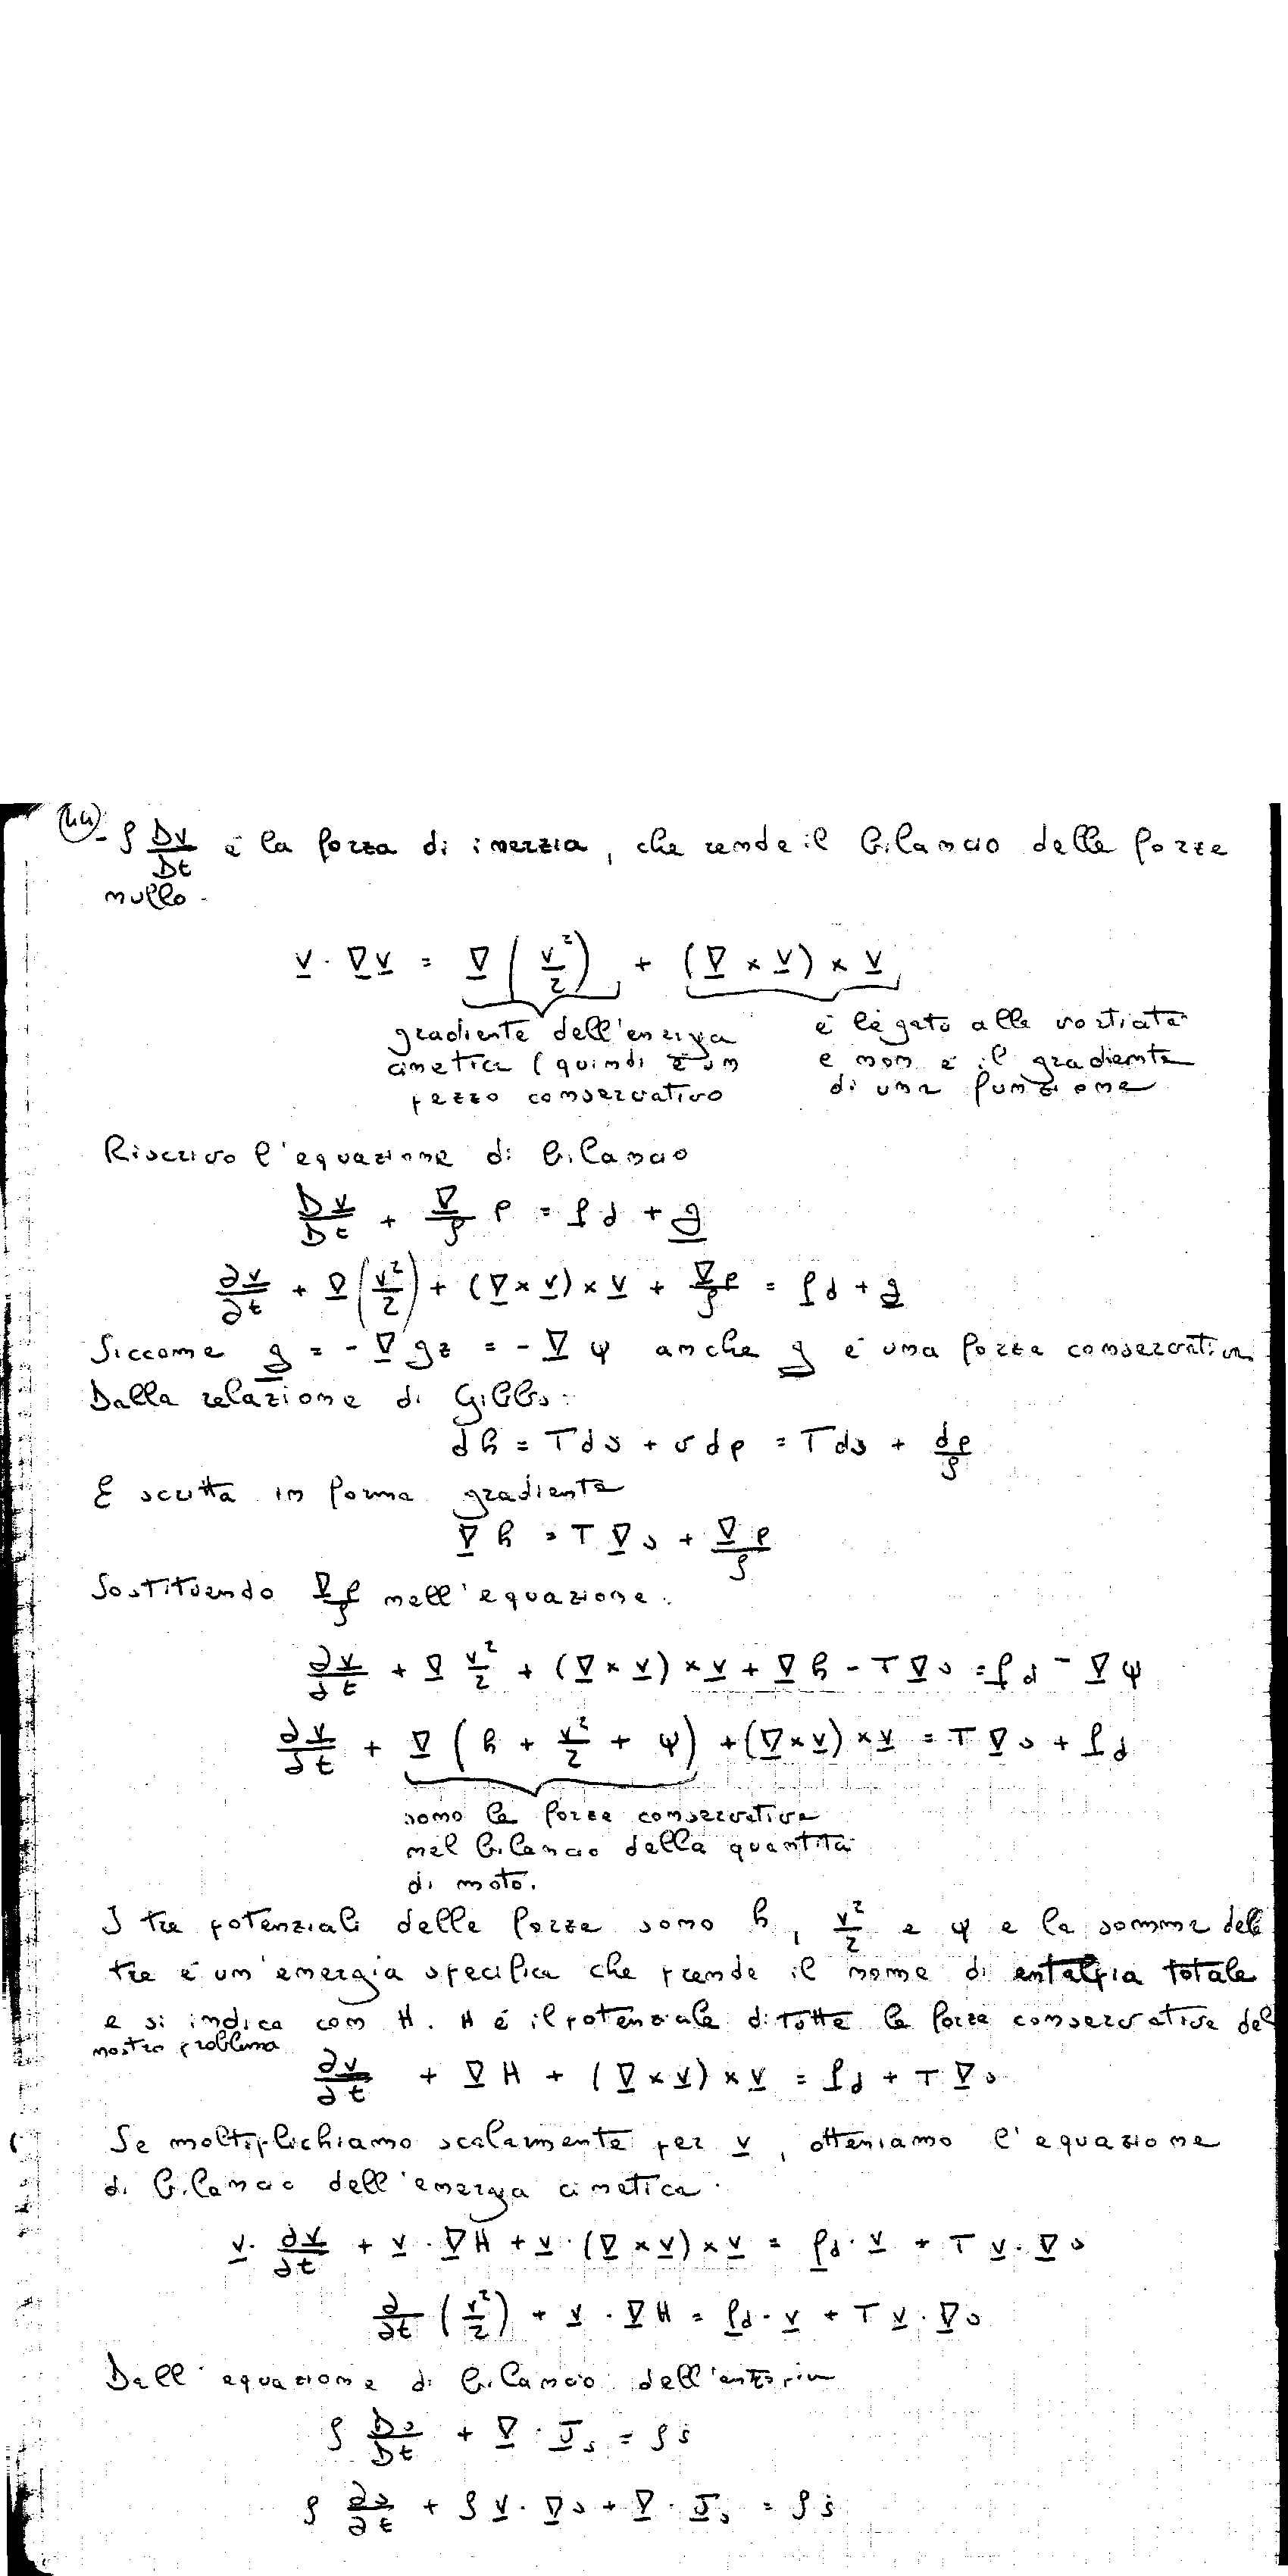 (44)
- ρ Dv/Dt è la forza di inerzia, che rende il bilancio delle forze
nullo.
v · ∇v = ∇(v²/2) + (∇ × v) × v
gradiente dell'energia
cinetica (quindi è un
pezzo conservativo
è legato alla vorticità
e non è il gradiente
di una funzione
Riscrivo l'equazione di bilancio
Dv/Dt + ∇/ρ p = f d + g
∂v/∂t + ∇(v²/2) + (∇ × v) × v + ∇p/ρ = f d + g
Siccome g = - ∇ gz = - ∇ ψ anche g è una forza conservativa
Dalla relazione di Gibbs:
dh = Tds + vdp = Tds + dp/ρ
E scritta in forma gradiente
∇ h = T ∇ s + ∇p/ρ
Sostituendo ∇p/ρ nell'equazione:
∂v/∂t + ∇ v²/2 + (∇ × v) × v + ∇ h - T ∇ s = f d - ∇ ψ
∂v/∂t + ∇ (h + v²/2 + ψ) + (∇ × v) × v = T ∇ s + f d
sono le forze conservative
nel bilancio della quantità
di moto.
I tre potenziali delle forze sono h, v²/2 e ψ e la somma delle
tre è un'energia specifica che prende il nome di entalpia totale
e si indica con H. H è il potenziale di tutte le forze conservative del
nostro problema
∂v/∂t + ∇ H + (∇ × v) × v = f d + T ∇ s
Se moltiplichiamo scalarmente per v, otteniamo l'equazione
di bilancio dell'energia cinetica.
v · ∂v/∂t + v · ∇H + v · (∇ × v) × v = f d · v + T v · ∇ s
∂/∂t (v²/2) + v · ∇H = f d · v + T v · ∇ s
Dall'equazione di bilancio dell'entropia
ρ Ds/Dt + ∇ · J s = ρ ṡ
ρ ∂s/∂t + ρ v · ∇s + ∇ · J s = ρ ṡ